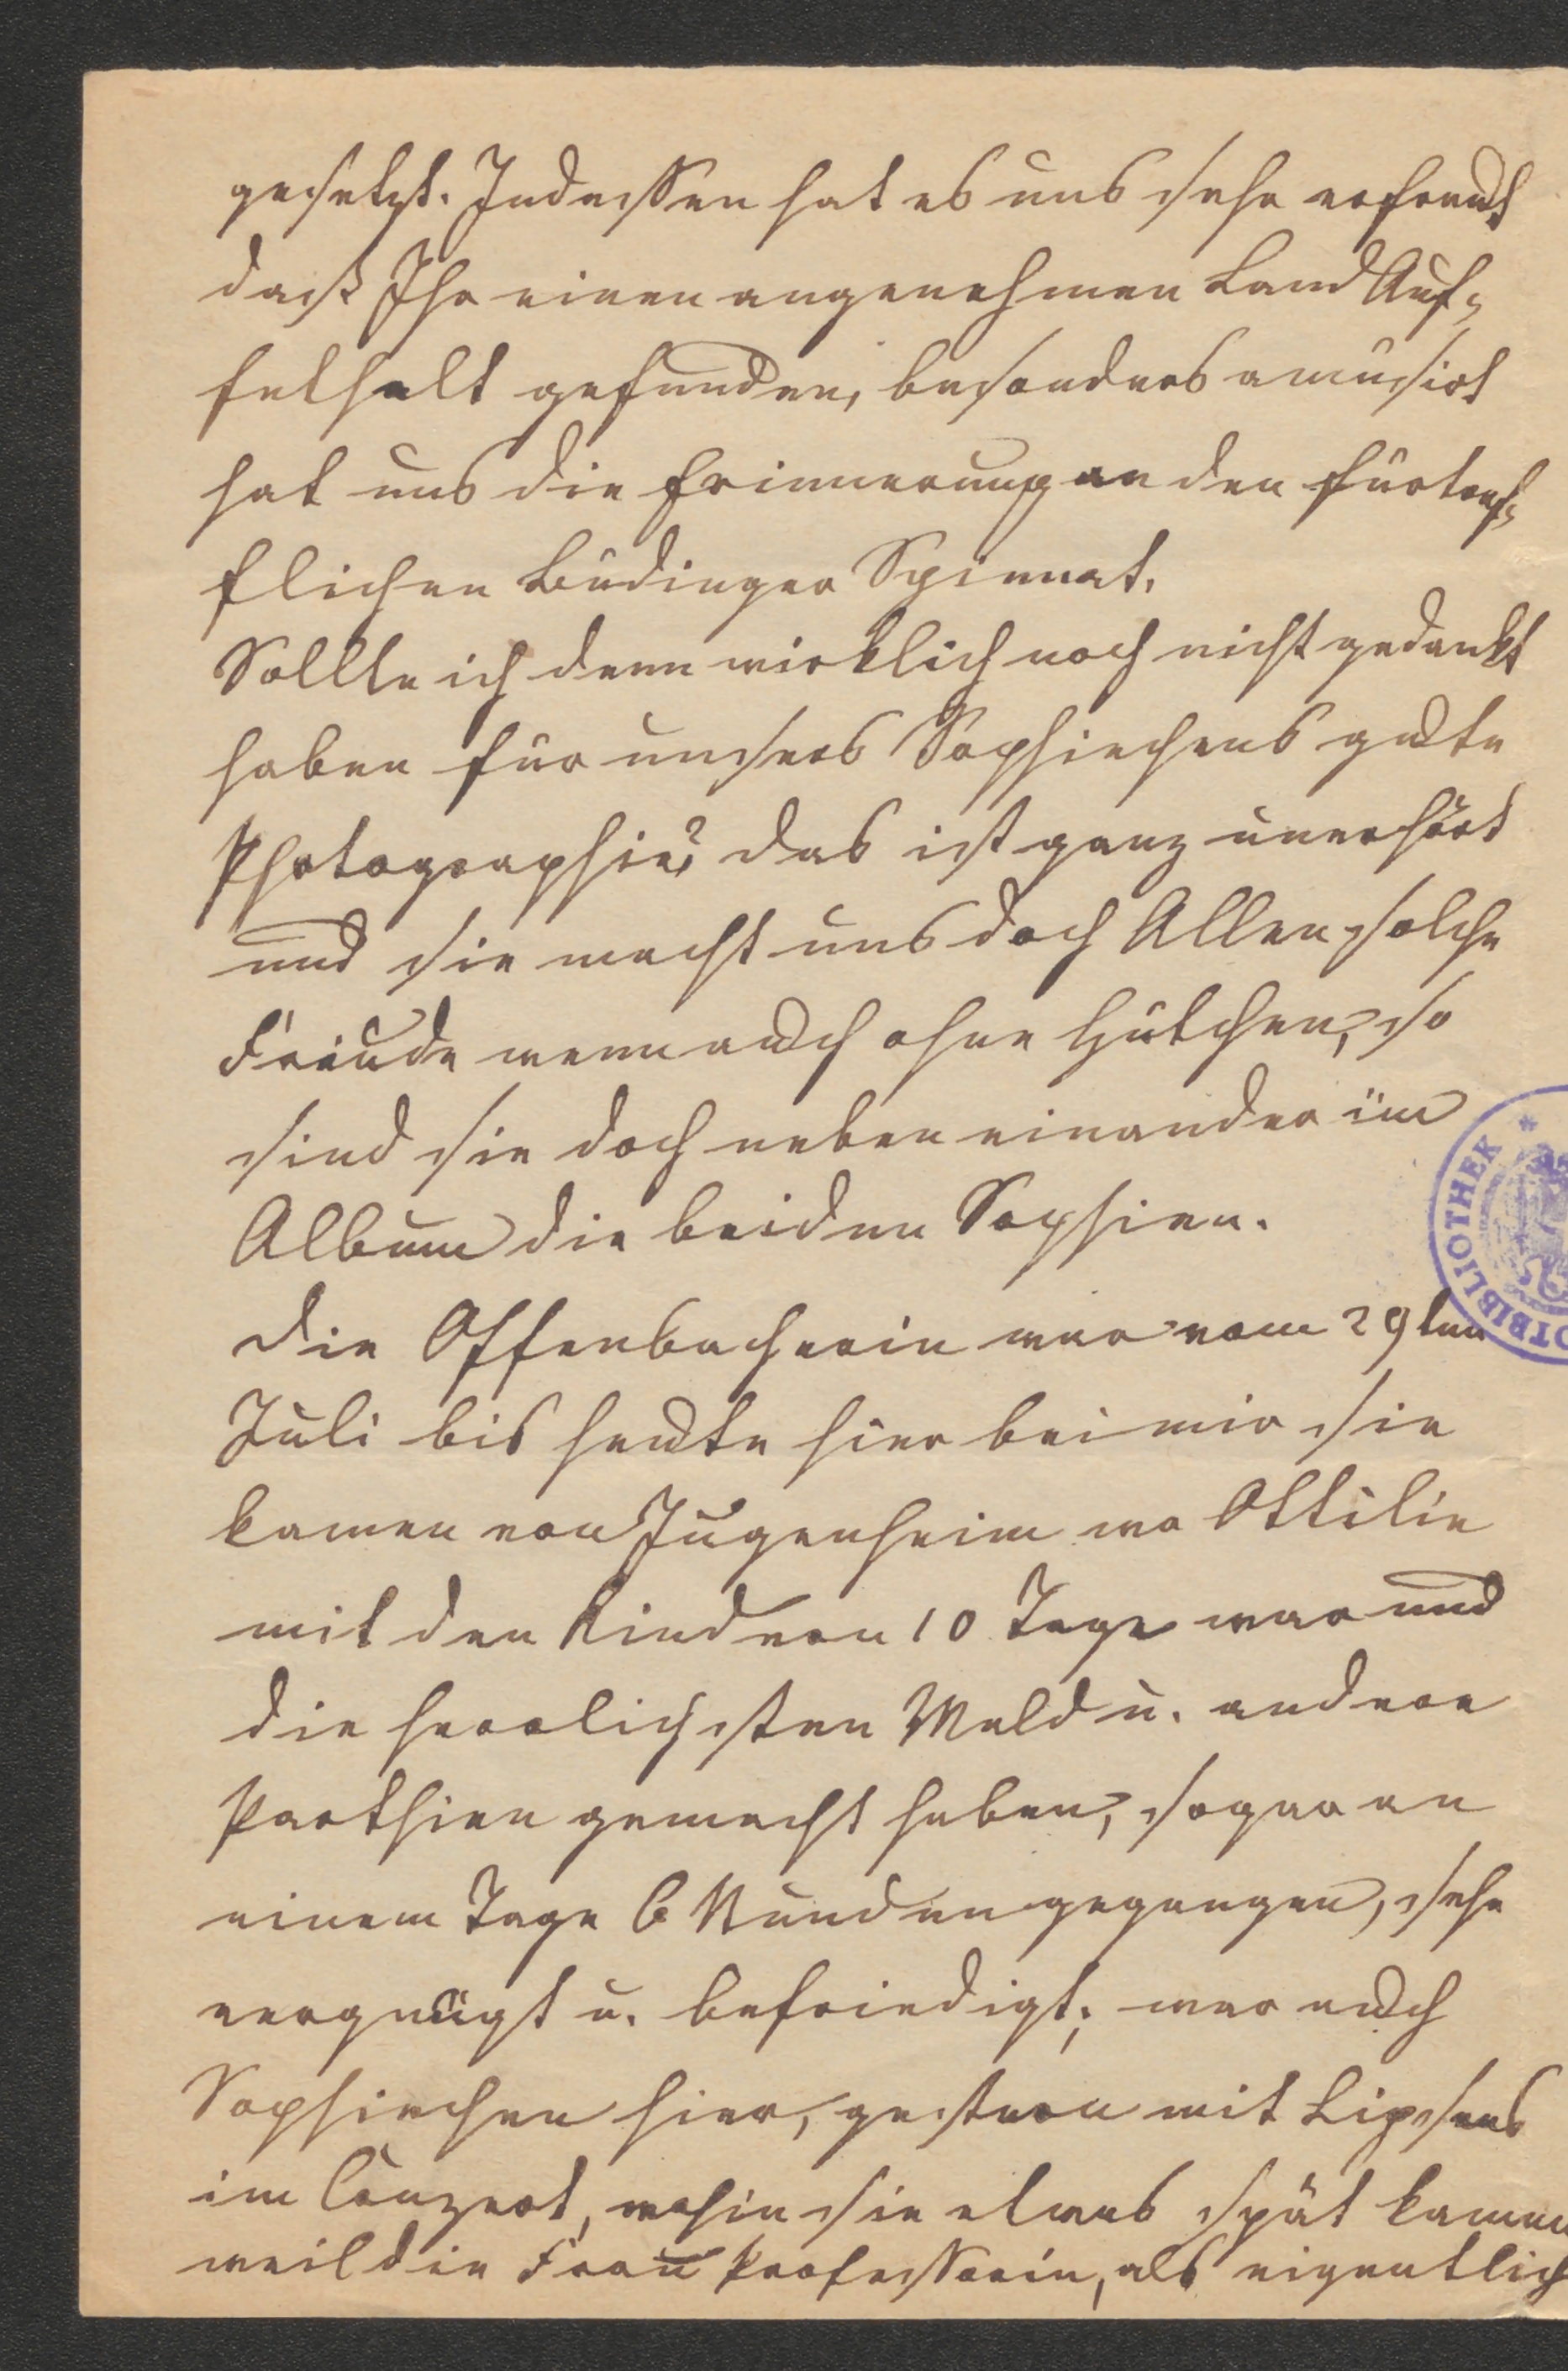 gesetzt. Indessen hat es uns sehr erfreut
daß Ihr einen angenehmen Land Auf-
enthalt gefunden, besonders amüsirt
hat uns die Erinnerung an den fürtref-
flichen Büdinger Spinnat.
Sollte ich denn wirklich noch nicht gedankt
haben für unsers Sophiechens gute
Photographie? das ist ganz unerhört
und sie macht uns doch Allen solche
Freude wenn auch ohne Hütchen, so
sind sie doch neben einander im
Album die beiden Sophien.
Die Offenbacherin war vom 29ten
Juli bis heute hier bei mir sie
kamen von Jugenheim wo Ottilie
mit den Kindern 10 Tage war und
die herrlichsten Wald u. andere
Parthien gemacht haben, sogar an
einem Tage 6 Stunden gegangen, sehr
vergnügt u. befriedigt; war auch
Sophiechen hier, gestern mit Lipsens
im Conzert, wohin sie etwas spät kamen
weil die Frau Professorin, als eigentlich
OTBIBLIOTHEK *